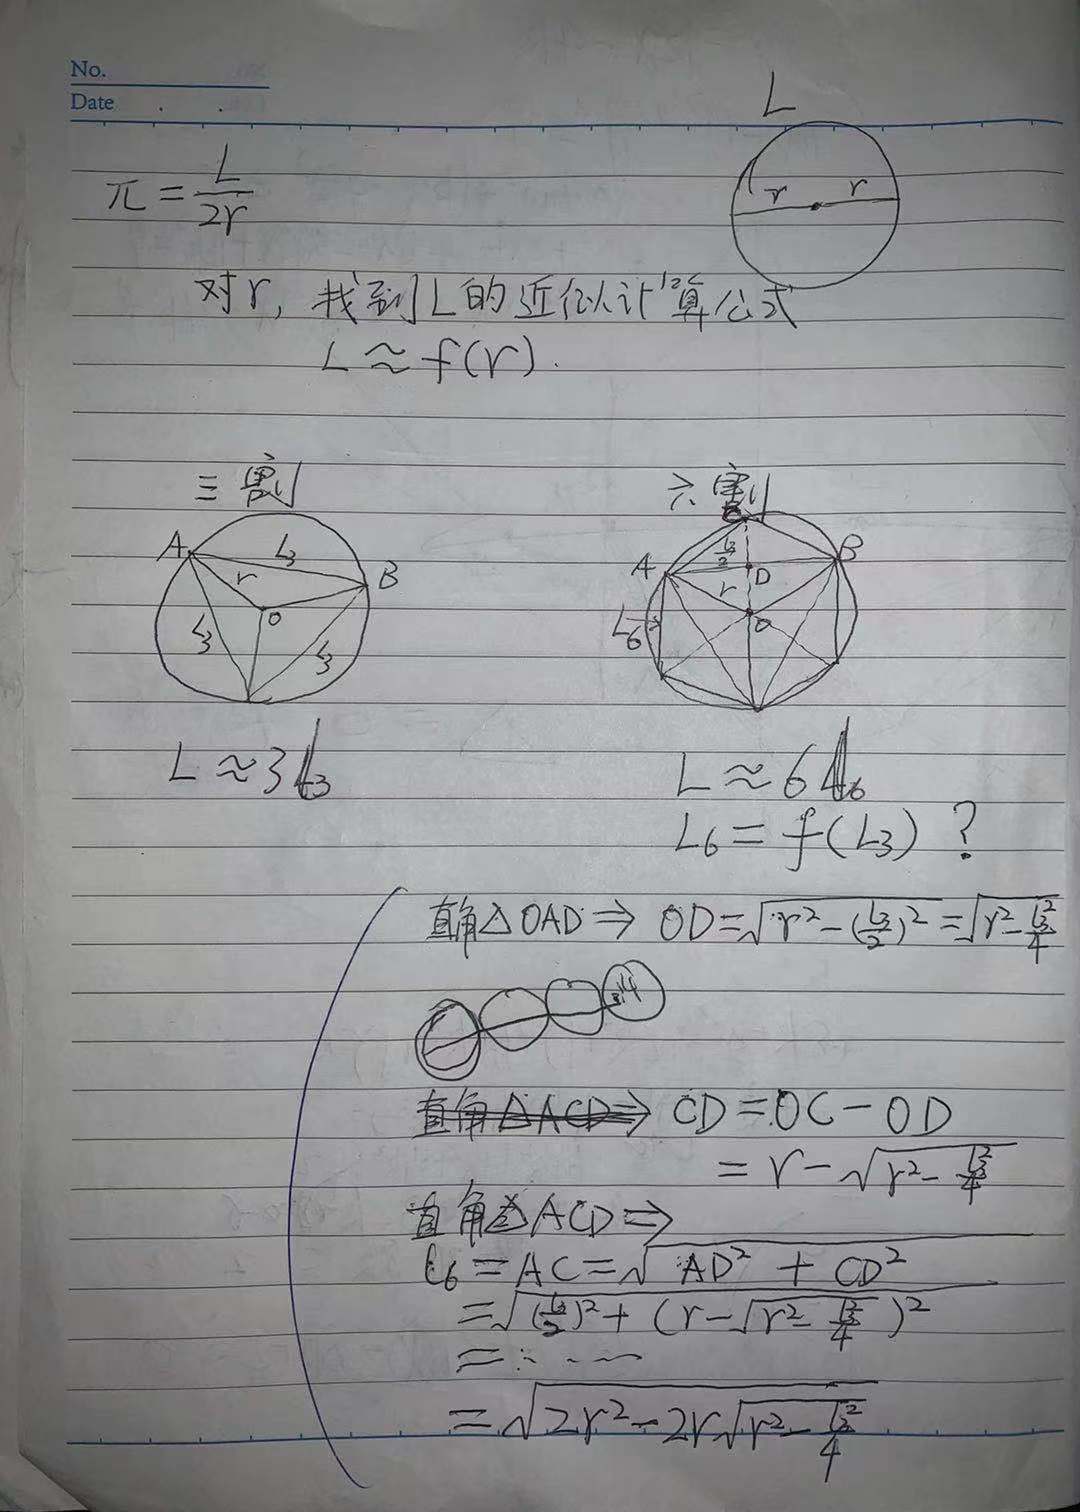 No.
Date . .
L
π = L/2r
r r
对r, 找到L的近似计算公式
L ≈ f(r).
三割
六割
A L₃ B
r
O
L₃ L₃
C
A L₃/2 B
D
r
O
L₆
L ≈ 3L₃
L ≈ 6L₆
L₆ = f(L₃) ?
直角△OAD ⇒ OD = √(r² - (L₃/2)²) = √(r² - L₃²/4)
直角△ACD ⇒ CD = OC - OD
= r - √(r² - L₃²/4)
直角△ACD ⇒
L₆ = AC = √(AD² + CD²)
= √((L₃/2)² + (r - √(r² - L₃²/4))²)
= ......
= √(2r² - 2r√(r² - L₃²/4))